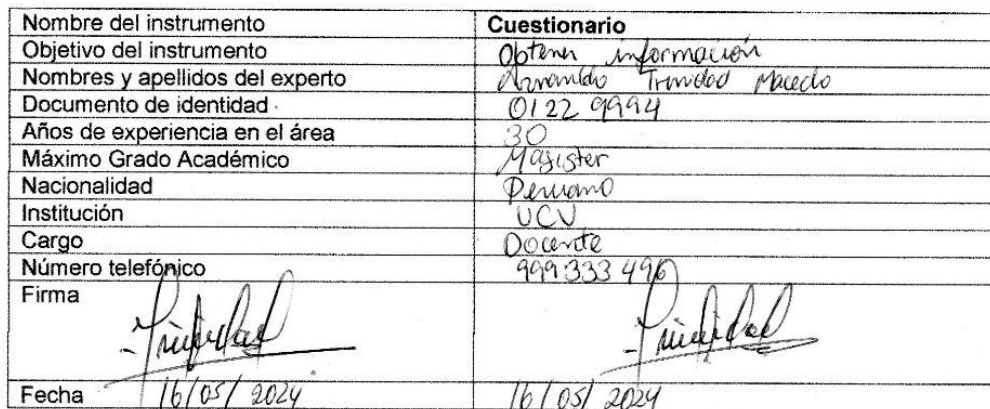 Nombre del instrumento Cuestionario
Objetivo del instrumento Obtener información
Nombres y apellidos del experto Armando Trinidad Macedo
Documento de identidad 01229994
Años de experiencia en el área 30
Máximo Grado Académico Magister
Nacionalidad Peruano
Institución UCV
Cargo Docente
Número telefónico 999333496
Firma Trinidad Trinidad
Fecha 16/05/2024 16/05/2024